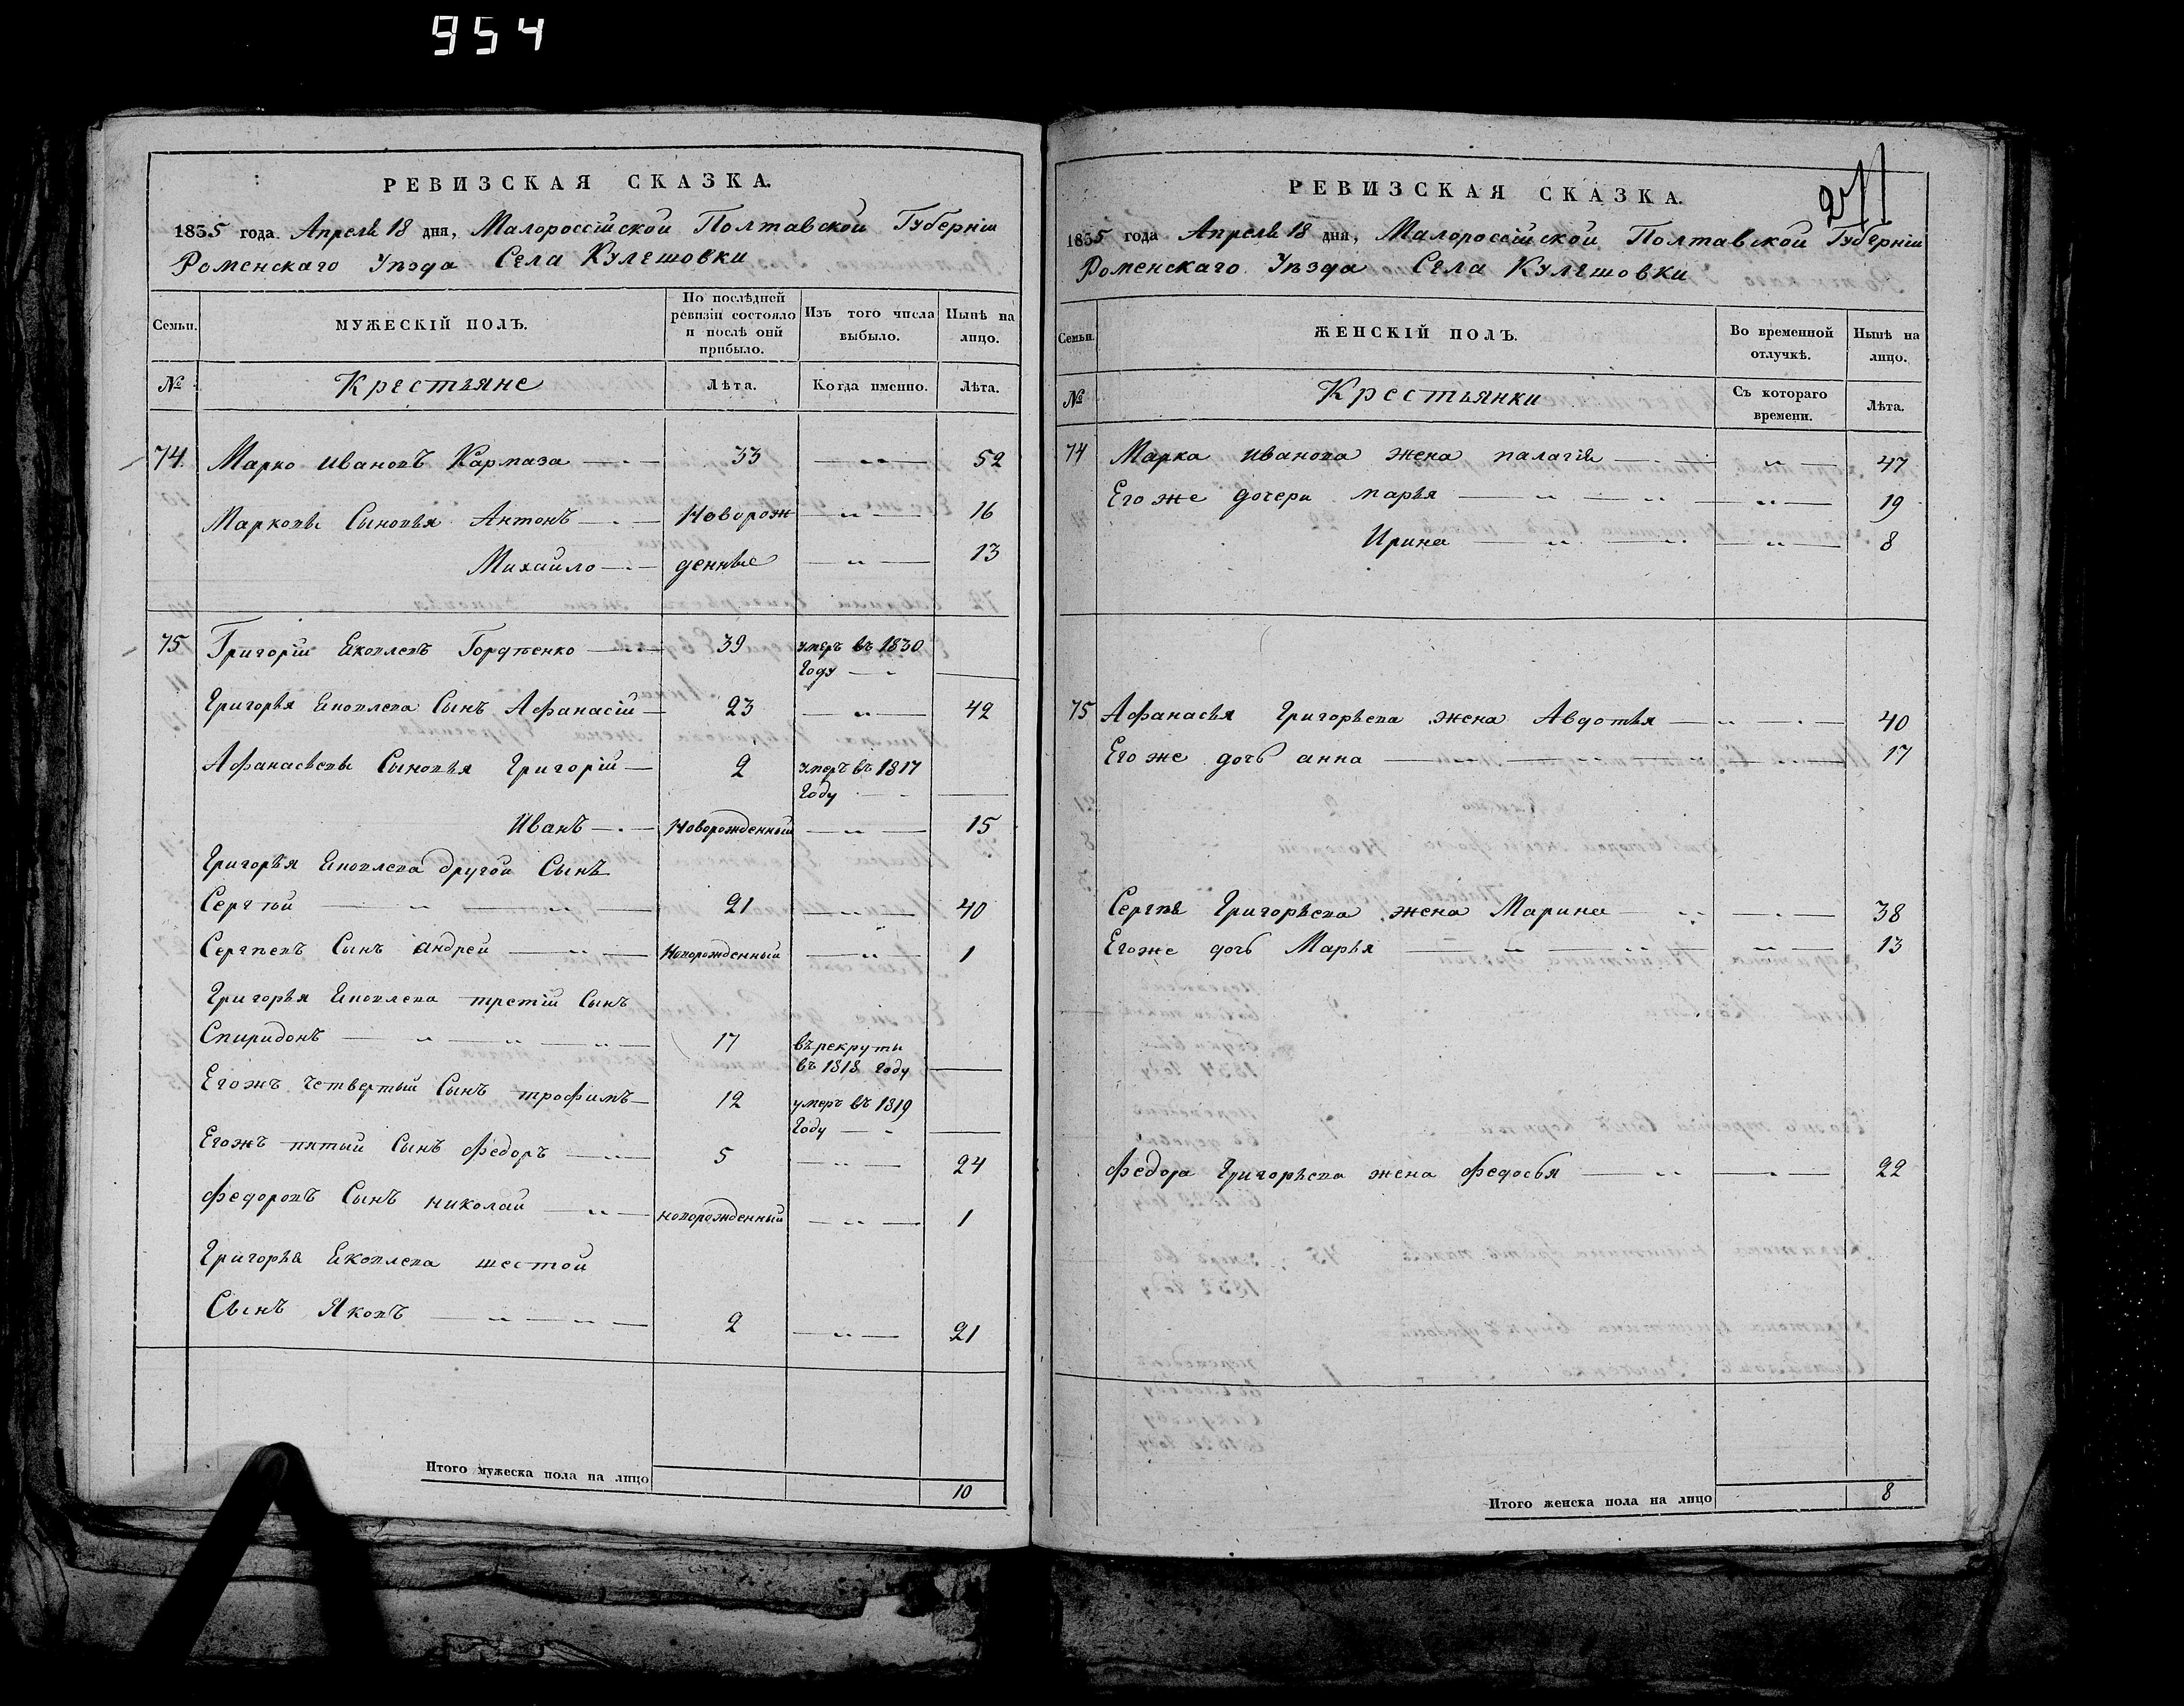 954
РЕВИЗСКАЯ СКАЗКА.
1835 года Апреля 18 дня, Малороссійской Полтавской Губерніи
Роменскаго Уѣзда Села Кулешовки
Семьи.
МУЖЕСКІЙ ПОЛЪ.
По послѣдней
ревизіи состояло
и послѣ оной
прибыло.
Изъ того числа
выбыло.
Нынѣ на
лицо.
№ Крестьяне Лѣта. Когда именно. Лѣта.
74. Марко Ивановъ Кармаза 33 52
Марковы Сыновья Антонъ Новорож 16
Михайло денные 13
75 Григорій Яковлевъ Гордѣенко 39 умеръ въ 1830
Году
Григорья Яковлева Сынъ Афанасій 23 42
Афанасьевы Сыновья Григорій 2 умеръ въ 1817
Году
Иванъ Новорожденный 15
Григорья Яковлева другой Сынъ
Сергѣй 21 40
Сергѣевъ Сынъ андрей Новорожденный 1
Григорья Яковлева третій Сынъ
Спиридонъ 17 въ рекруты
въ 1818 Году
Егожъ Четвертый Сынъ трофимъ 12 умеръ въ 1819
Году
Егожъ пятый Сынъ Федоръ 5 24
Федоровъ Сынъ николай новорожденный 1
Григорья Яковлева шестой
Сынъ Яковъ 2 21
Итого мужеска пола на лицо 10
271
РЕВИЗСКАЯ СКАЗКА.
1835 года Апреля 18 дня, Малороссійской Полтавской Губерніи
Роменскаго Уѣзда Села Кулешовки
Семьи.
ЖЕНСКІЙ ПОЛЪ.
Во временной
отлучкѣ.
Нынѣ на
лицо.
№ Крестьянки
Съ котораго
времени.
Лѣта.
74 Марка Иванова жена палагія 47
Его же дочери марья 19
Ирина 8
75 Афанасья Григорьева жена Авдотья 40
Его же дочь анна 17
Сергѣя Григорьева жена Марина 38
Егоже дочь Марья 13
Федора Григорьева жена Федосья 22
Итого женска пола на лицо 8